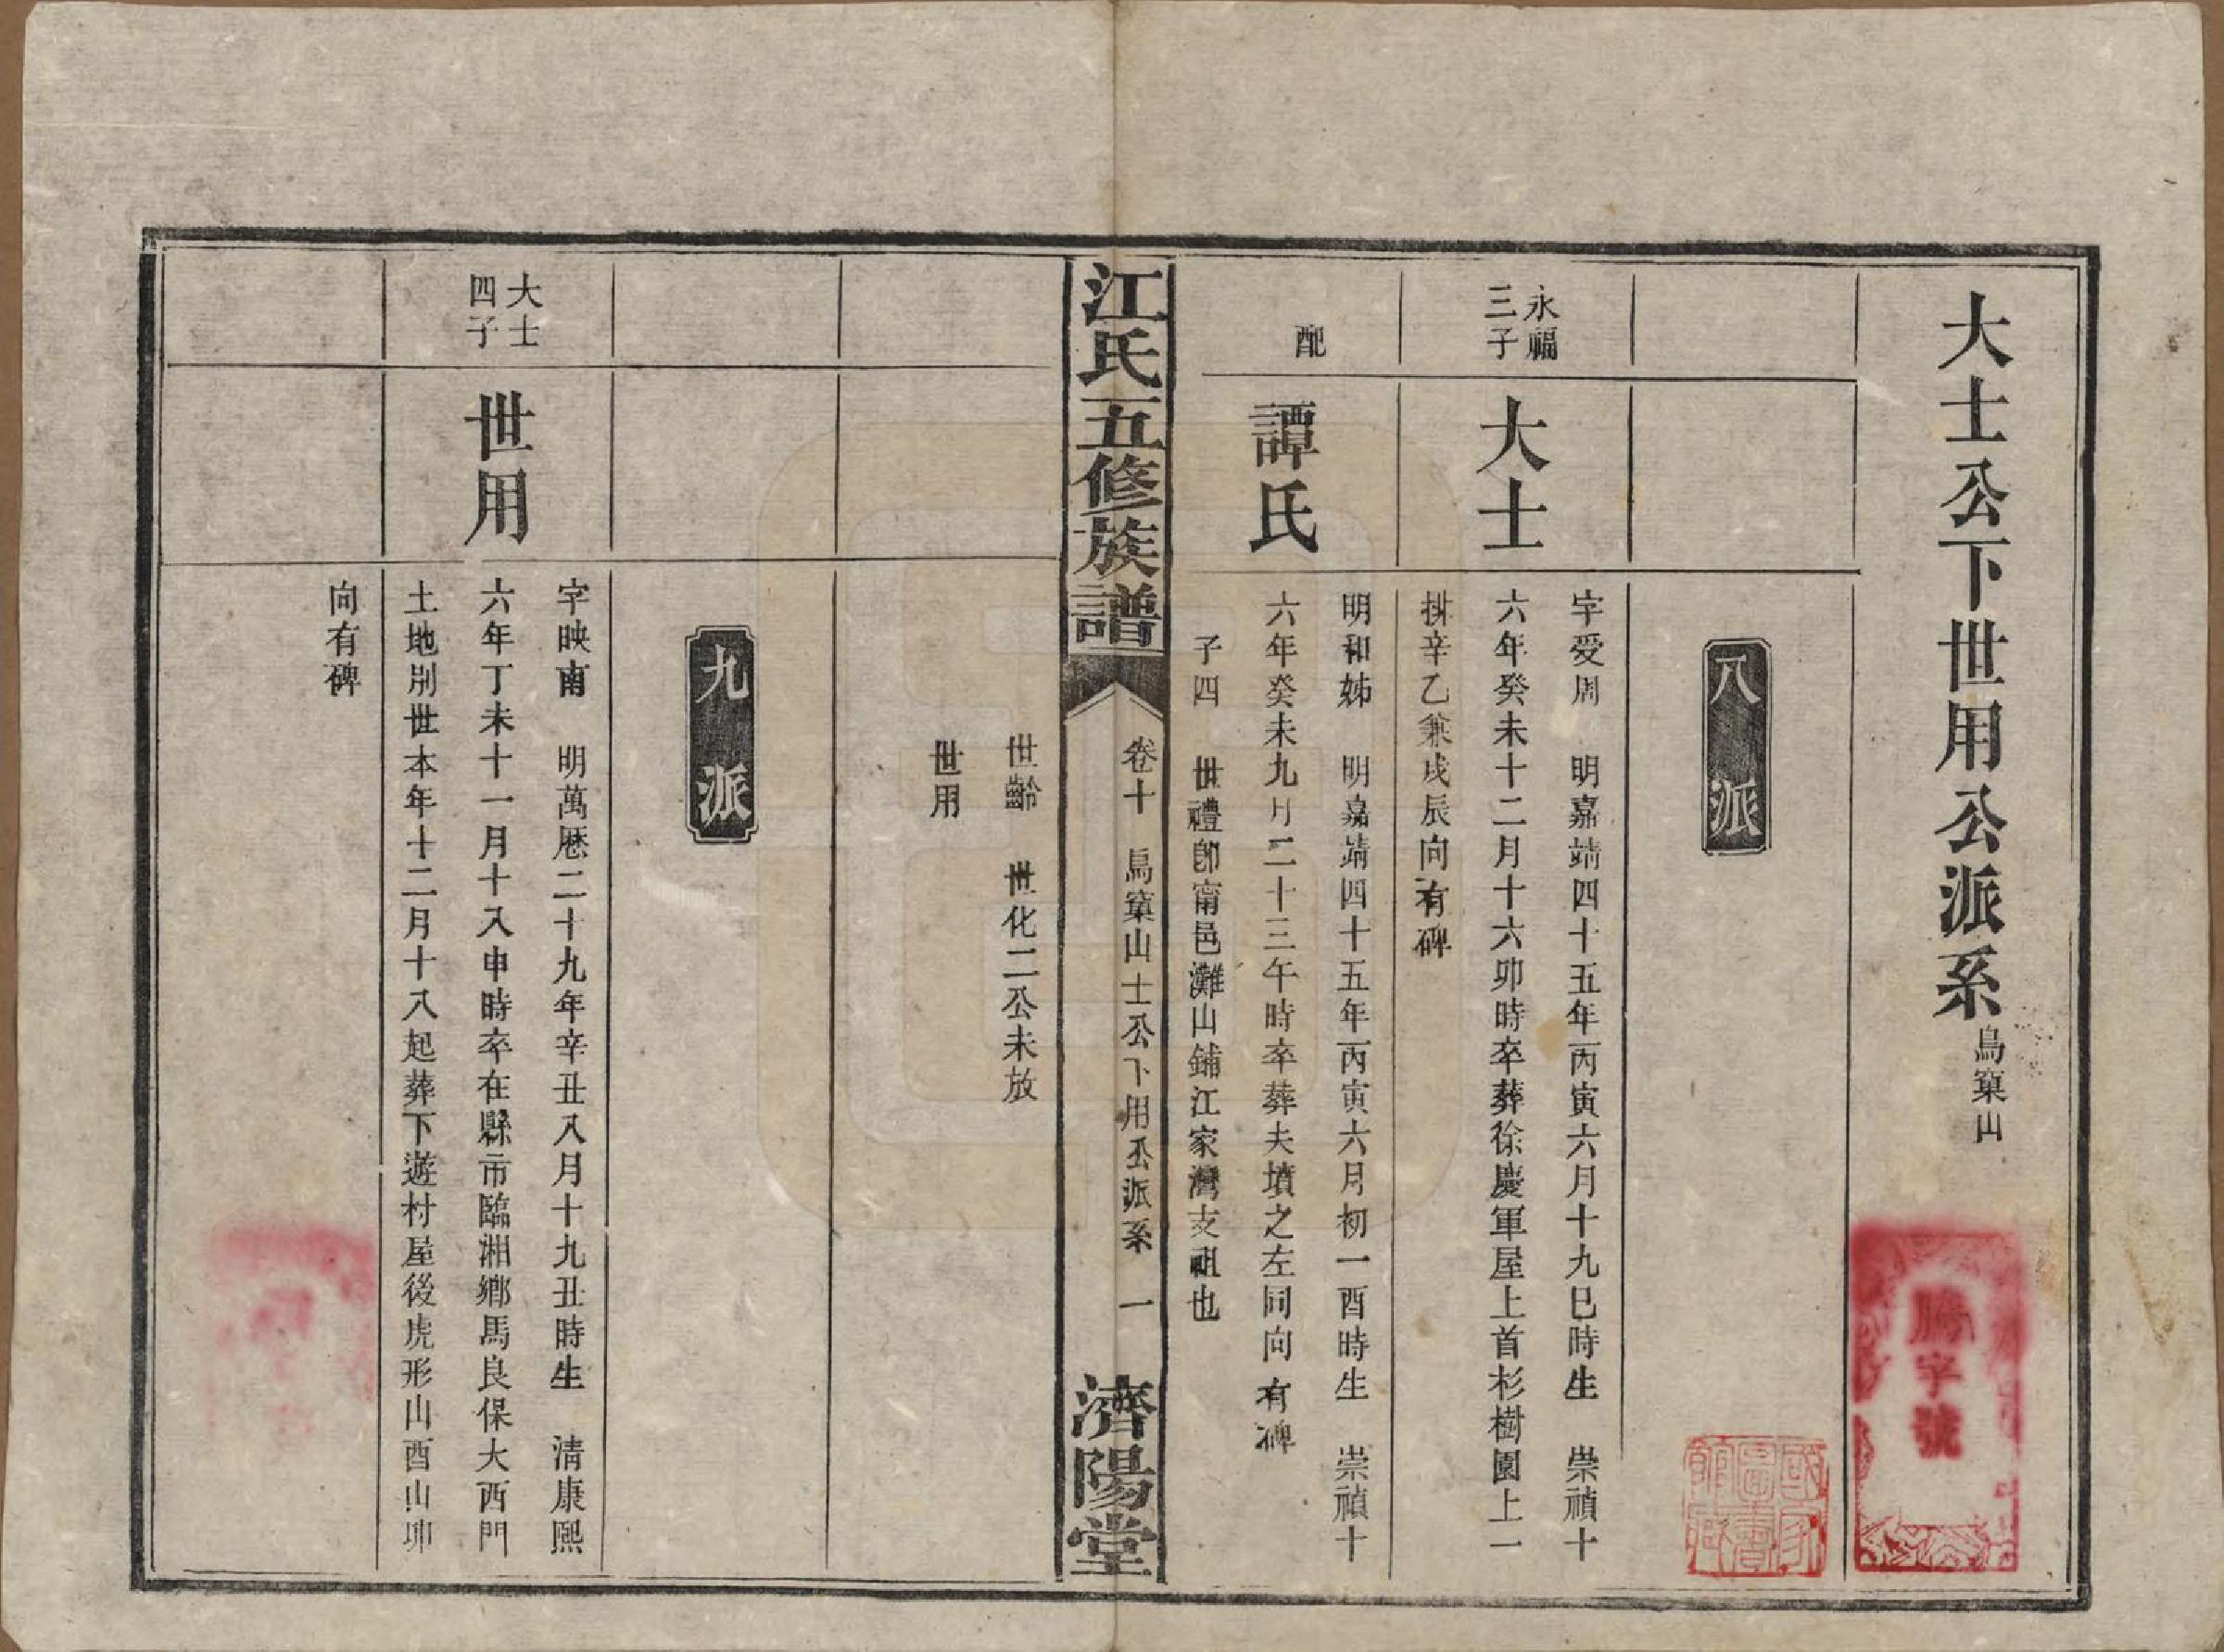 大士公下世用公派系 鳥窠山
八派
永福
三子
大士
字受周 明嘉靖四十五年丙寅六月十九巳時生 崇禎十
六年癸未十二月十六卯時卒葬徐慶軍屋上首杉樹園上一
排辛乙兼戌辰向有碑
配
譚氏
明和姊 明嘉靖四十五年丙寅六月初一酉時生 崇禎十
六年癸未九月二十三午時卒葬夫墳之左同向有碑
子四 世禮卽甯邑灘山鋪江家灣支祖也
江氏五修族譜
卷十 鳥窠山士公下用公派系 一
濟陽堂
世齡 世化二公未放
世用
九派
大士
四子
世用
字映南 明萬厯二十九年辛丑八月十九丑時生 清康熙
六年丁未十一月十八申時卒在縣市臨湘鄉馬良保大西門
土地別世本年十二月十八起葬下遊村屋後虎形山酉山卯
向有碑
騰字號
國家圖書館